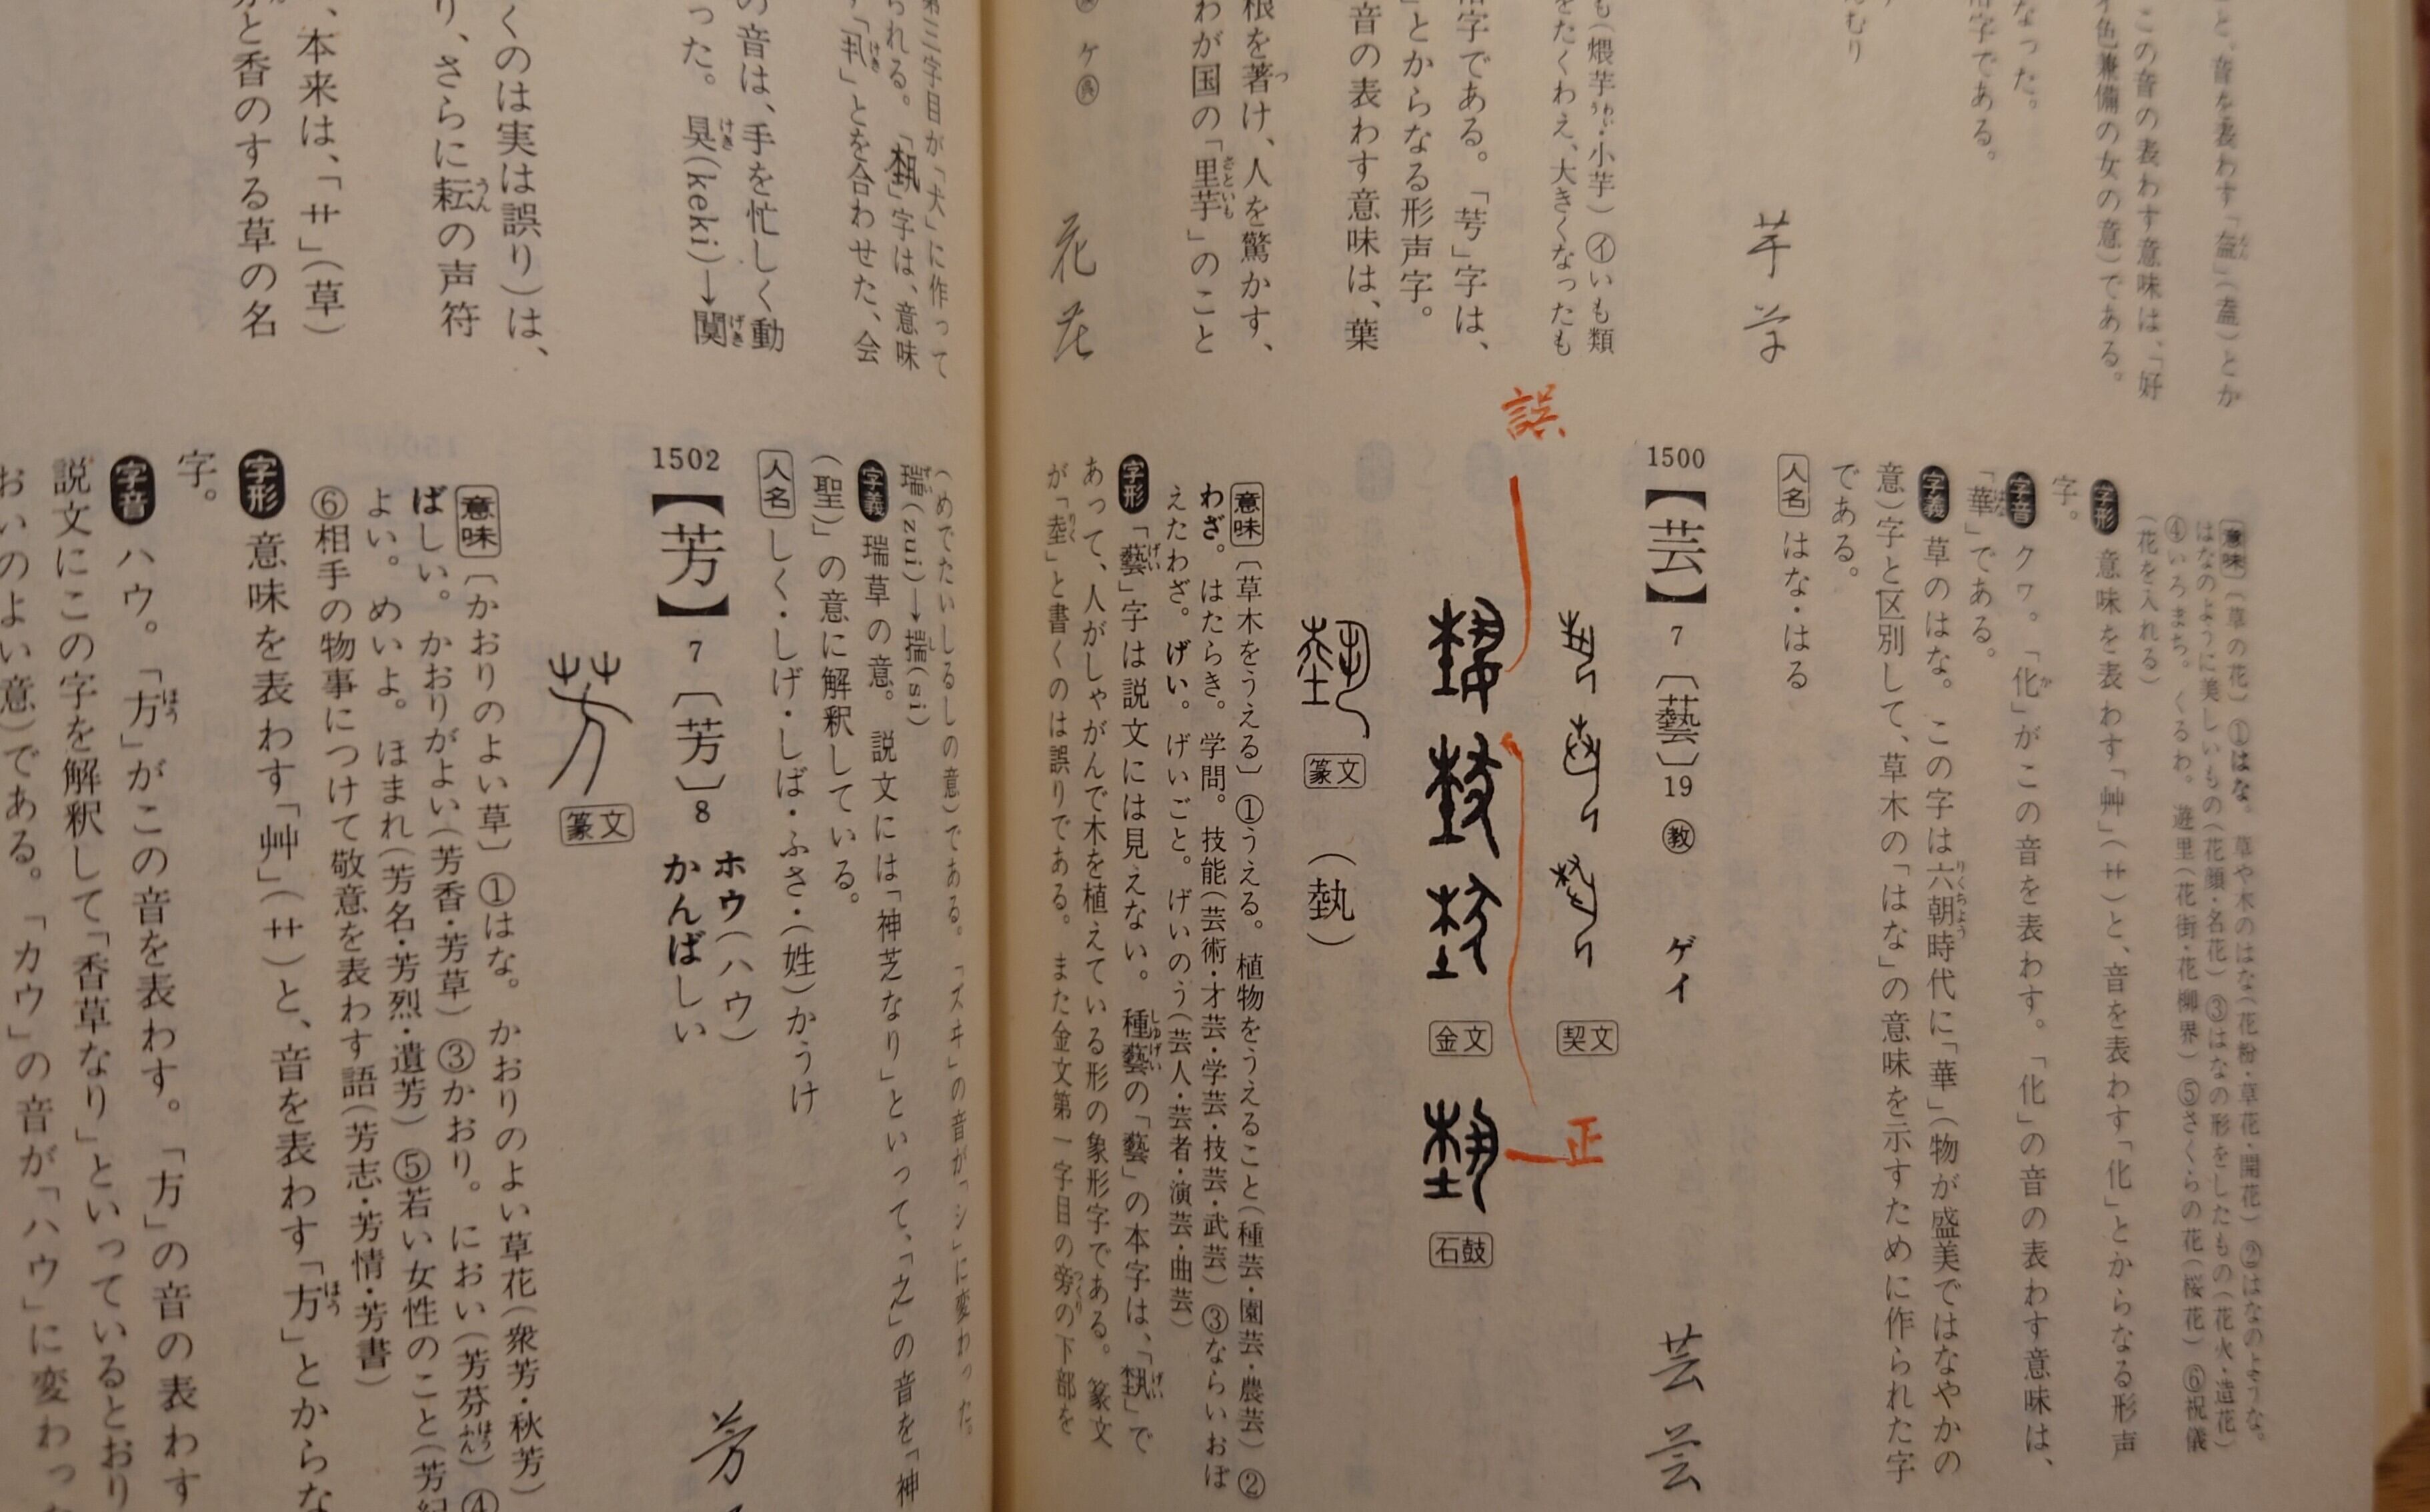 と、音を表わす「盍」(蓋)とか
この音の表わす意味は、「好
色兼備の女の意)である。
なった。
字である。
むり
芋
も(煨芋・小芋)㋑いも類
をたくわえ、大きくなったも
字である。「芌」字は、
」とからなる形声字。
音の表わす意味は、葉
根を著け、人を驚かす、
わが国の「里芋」のこと
ケ㋙
花
[意味]〔草の花〕①はな。草や木のはな(花粉・草花・開花)②はなのような。
はなのように美しいもの(花顔・名花)③はなの形をしたもの(花火・造花)
④いろまち。くるわ。遊里(花街・花柳界)⑤さくらの花(桜花)⑥祝儀
(花を入れる)
字形 意味を表わす「艸」(艹)と、音を表わす「化」とからなる形声
字。
字音 クヮ。「化」がこの音を表わす。「化」の音の表わす意味は、
「華」である。
字義 草のはな。この字は六朝時代に「華」(物が盛美ではなやかの
意)字と区別して、草木の「はな」の意味を示すために作られた字
である。
人名 はな・はる
1500【芸】7〔藝〕19㊙教 ゲイ
芸 芸
契文
誤
金文
正
石鼓
篆文 (埶)
[意味]〔草木をうえる〕①うえる。植物をうえること(種芸・園芸・農芸)②
わざ。はたらき。学問。技能(芸術・才芸・学芸・技芸・武芸)③ならいおぼ
えたわざ。げい。げいごと。げいのう(芸人・芸者・演芸・曲芸)
字形 「藝」字は説文には見えない。種藝の「藝」の本字は、「埶」で
あって、人がしゃがんで木を植えている形の象形字である。篆文
が「坴」と書くのは誤りである。また金文第一字目の旁の下部を
第三字目が「犬」に作って
られる。「埶」字は、意味
「丮」とを合わせた、会
の音は、手を忙しく動
った。㹟(keki)→闃
くのは実は誤り)は、
り、さらに耘の声符
、本来は、「艹」(草)
と香のする草の名
(めでたいしるしの意)である。「スヰ」の音が「シ」に変わった。
瑞(zui)→揣(si)
字義 瑞草の意。説文には「神芝なり」といって、「之」の音を「神
(聖)」の意に解釈している。
人名 しく・しげ・しば・ふさ・(姓)かうけ
1502【芳】7〔芳〕8 ホウ(ハウ) かんばしい
芳
篆文
[意味]〔かおりのよい草〕①はな。かおりのよい草花(衆芳・秋芳)
ばしい。かおりがよい(芳香・芳草)③かおり。におい(芳芬)④
よい。めいよ。ほまれ(芳名・芳烈・遺芳)⑤若い女性のこと(芳紀
⑥相手の物事につけて敬意を表わす語(芳志・芳情・芳書)
字形 意味を表わす「艸」(艹)と、音を表わす「方」とからな
字。
字音 ハウ。「方」がこの音を表わす。「方」の音の表わす
説文にこの字を解釈して「香草なり」といっているとおり
おいのよい意)である。「カウ」の音が「ハウ」に変わった